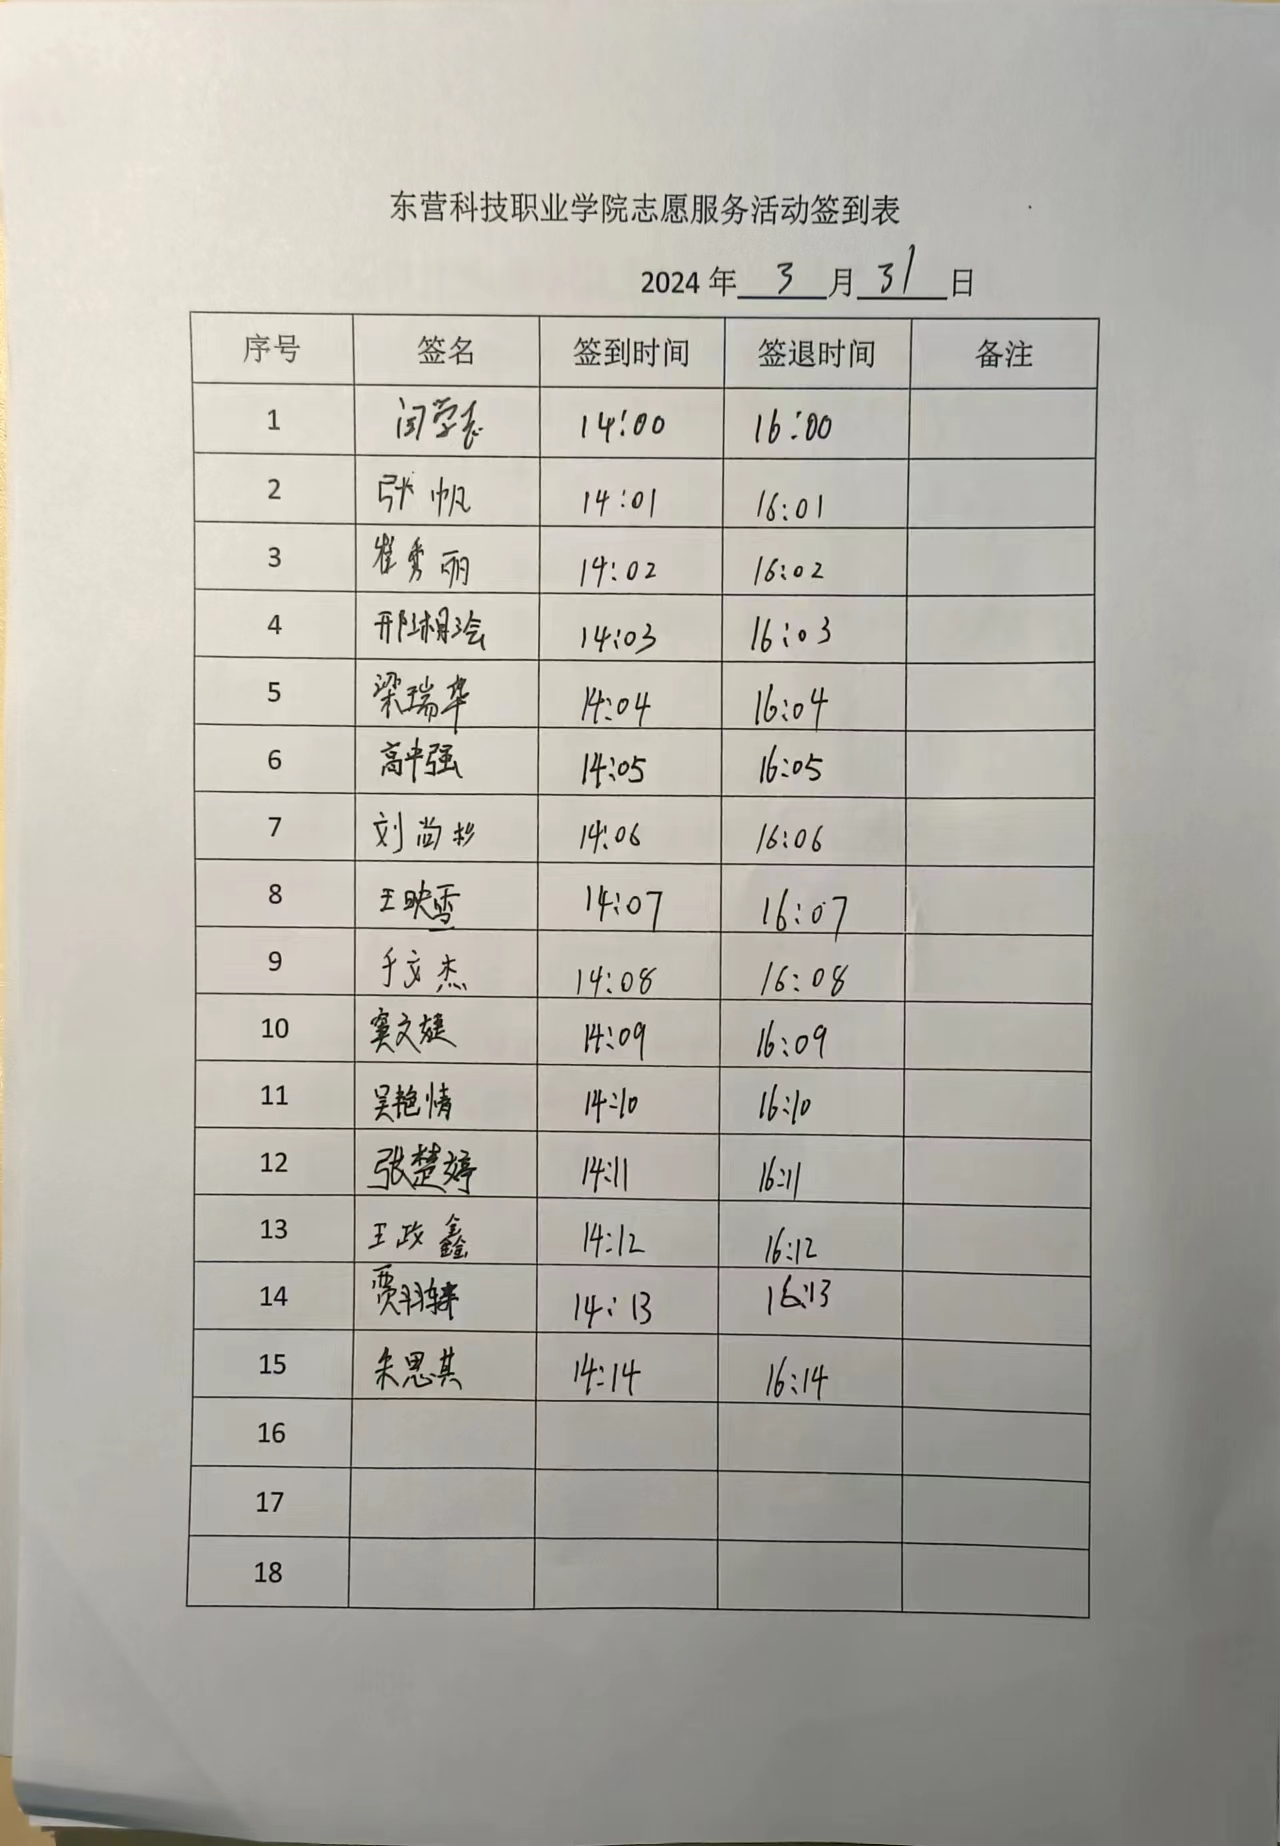 东营科技职业学院志愿服务活动签到表
2024 年 3 月 31 日
序号 签名 签到时间 签退时间 备注
1 闫学志 14:00 16:00
2 张帆 14:01 16:01
3 崔秀丽 14:02 16:02
4 14:03 16:03
5 梁瑞华 14:04 16:04
6 高中强 14:05 16:05
7 刘尚杉 14:06 16:06
8 王映雪 14:07 16:07
9 于文杰 14:08 16:08
10 窦文婕 14:09 16:09
11 吴艳情 14:10 16:10
12 张楚婷 14:11 16:11
13 王政鑫 14:12 16:12
14 14:13 16:13
15 朱思其 14:14 16:14
16
17
18